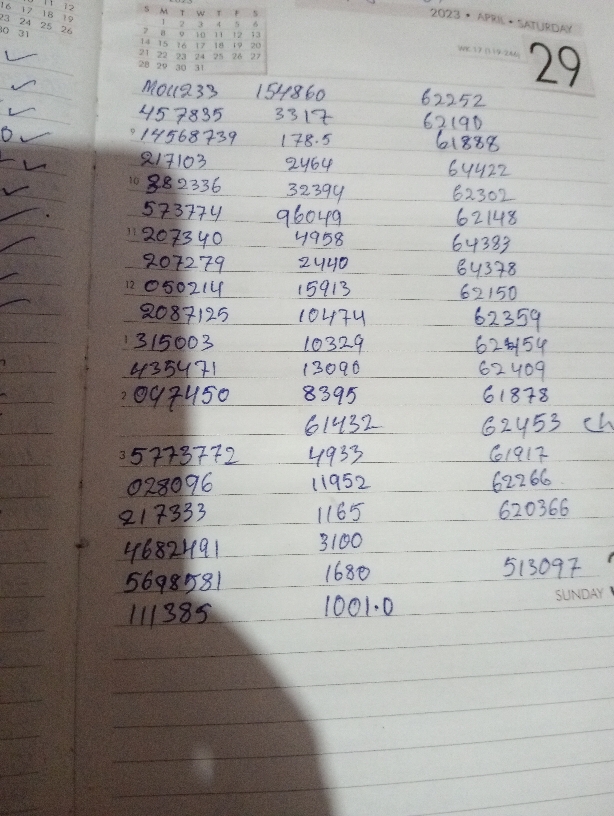 S M T W T F S
1 2 3 4 5 6
7 8 9 10 11 12 13
14 15 16 17 18 19 20
21 22 23 24 25 26 27
28 29 30 31
11 12
16 17 18 19
23 24 25 26
30 31
2023 • APRIL • SATURDAY
29
M011233 154860 62252
457835 3317 62190
9 14568739 178.5 61888
217103 2464 64422
10 882336 32394 62302
573774 96049 62148
11 207340 4958 64383
207279 2440 64378
12 050214 15913 62150
2087125 10474 62359
1 315003 10329 62454
435471 13090 62409
2 047450 8395 61878
61432 62453 ch
3 5773772 4933 61917
028096 11952 62266
217333 1165 620366
4682491 3100
5698581 1680 513097
SUNDAY
111385 1001.0